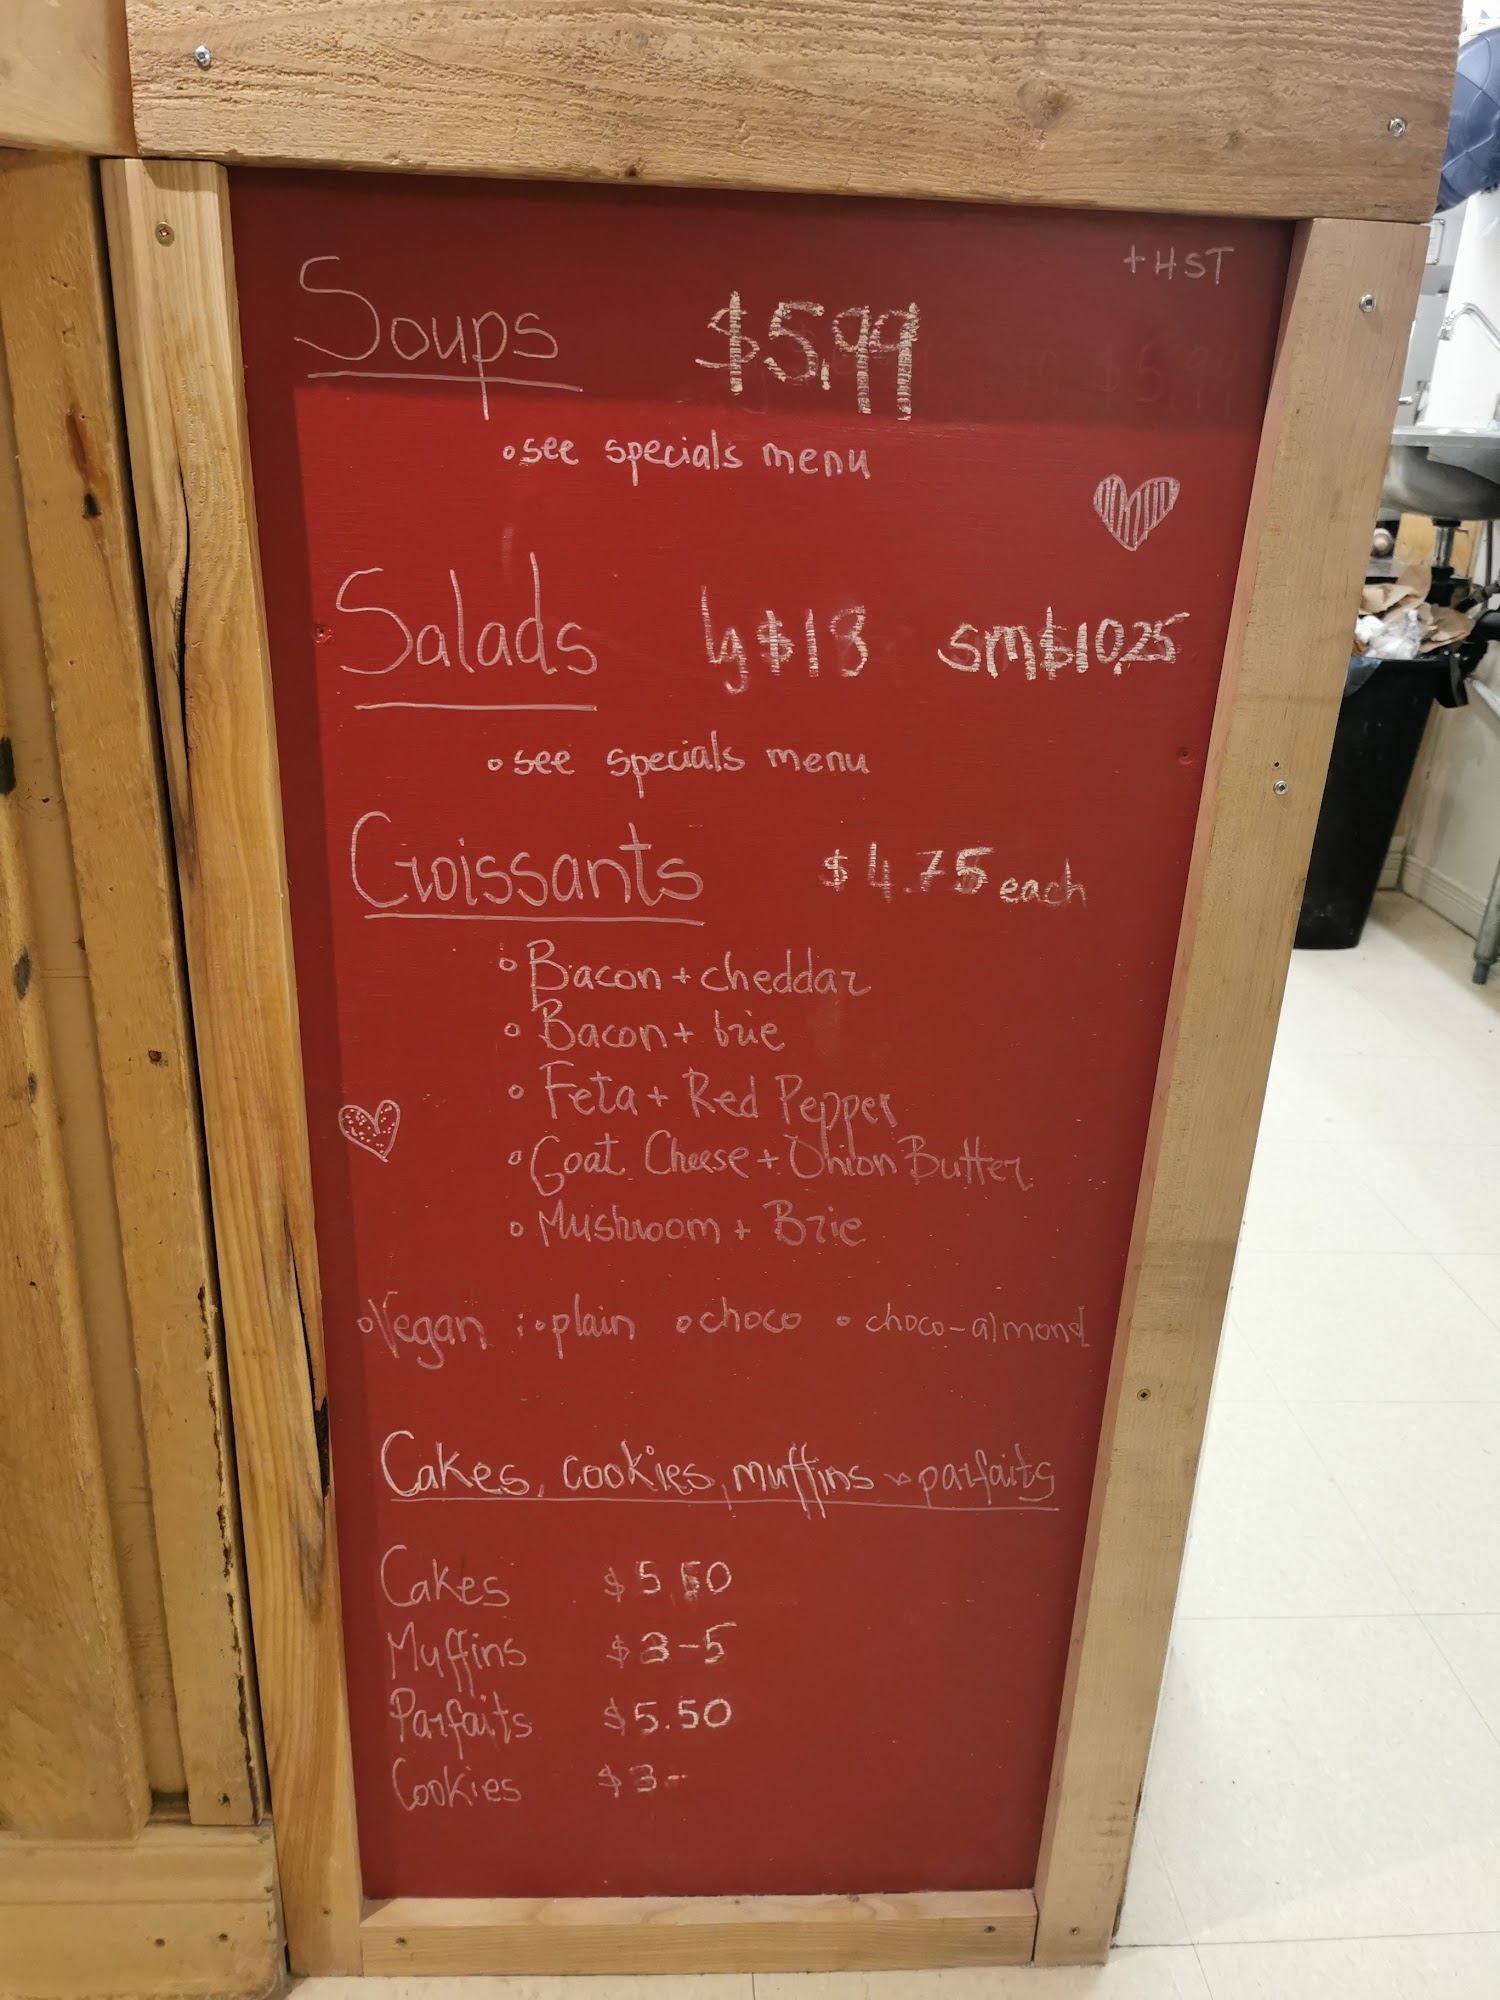 +HST
Soups $5.99
see specials menu
Salads lg $13 sm $10.25
see specials menu
Croissants $4.75 each
Bacon + cheddar
Bacon + brie
Feta + Red Pepper
Goat Cheese + Onion Butter
Mushroom + Brie
Vegan : plain choco choco-almond
Cakes, cookies, muffins parfaits
Cakes $5.50
Muffins $3-5
Parfaits $5.50
Cookies $3-